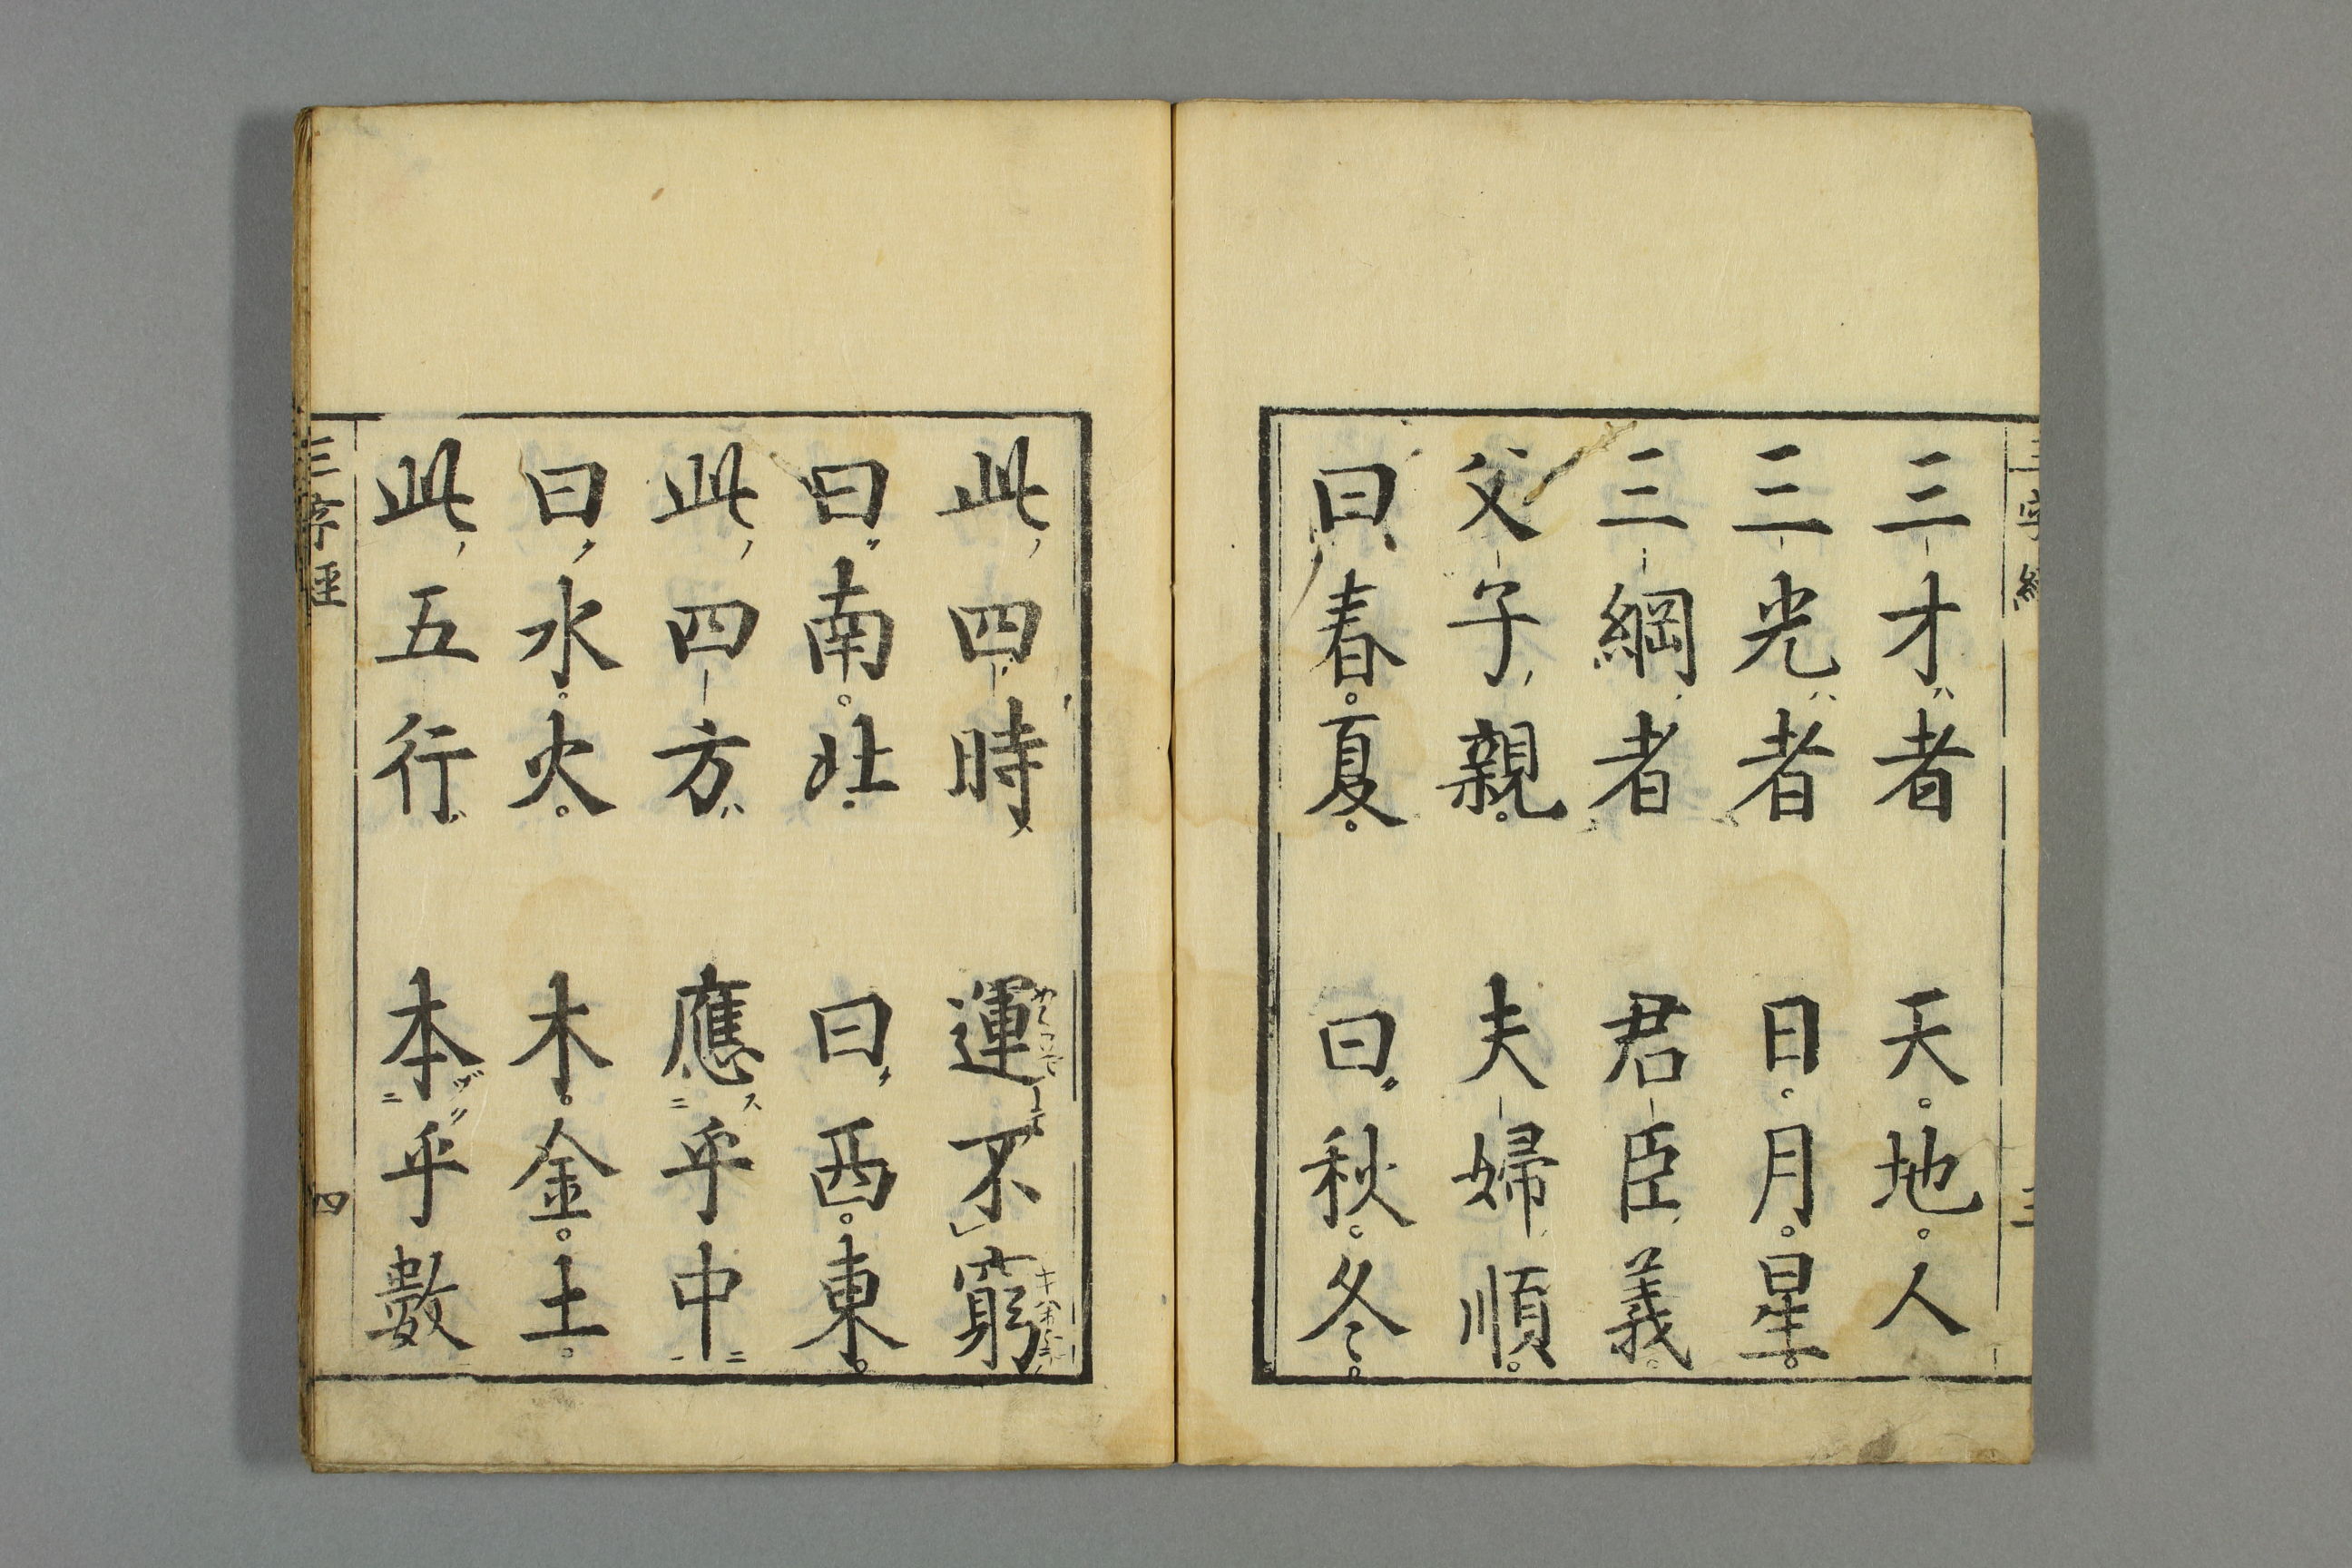 三才者 天地人
三光者 日月星
三綱者 君臣義
父子親 夫婦順
曰春夏 曰秋冬
此四時 運不窮
曰南北 曰西東
此四方 應乎中
曰水火 木金土
此五行 本乎數
三字經
四